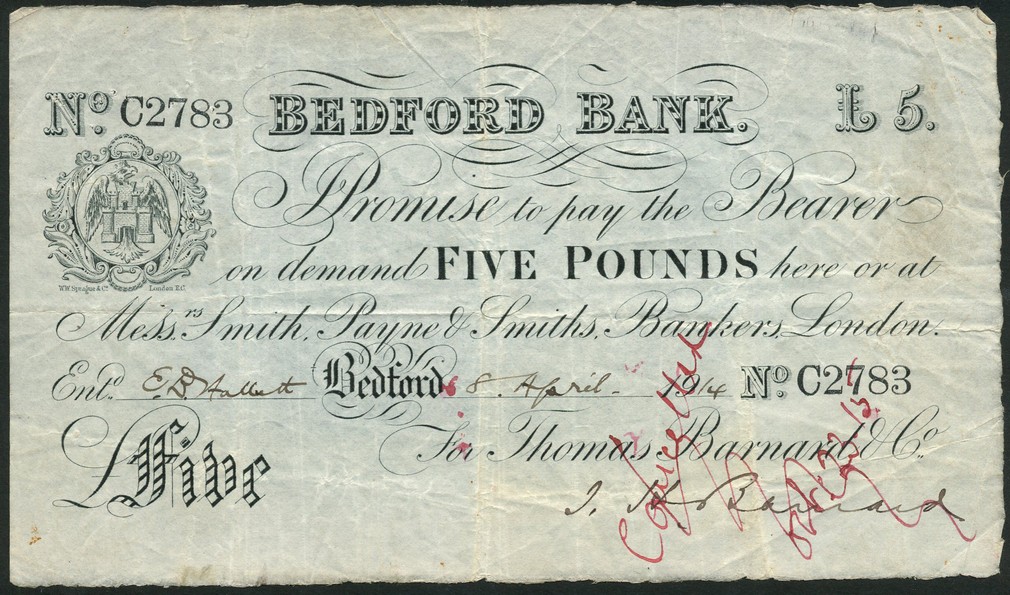 No. C2783 BEDFORD BANK. £ 5.
I Promise to pay the Bearer
on demand FIVE POUNDS here or at
W.W. Sprague & Co. London E.C.
Messrs Smith, Payne & Smiths, Bankers, London.
Entd. E.D. Hallett Bedford 8 April 1914 No. C2783
For Thomas Barnard & Co
£ Five
T. H. Barnard
Cancelled